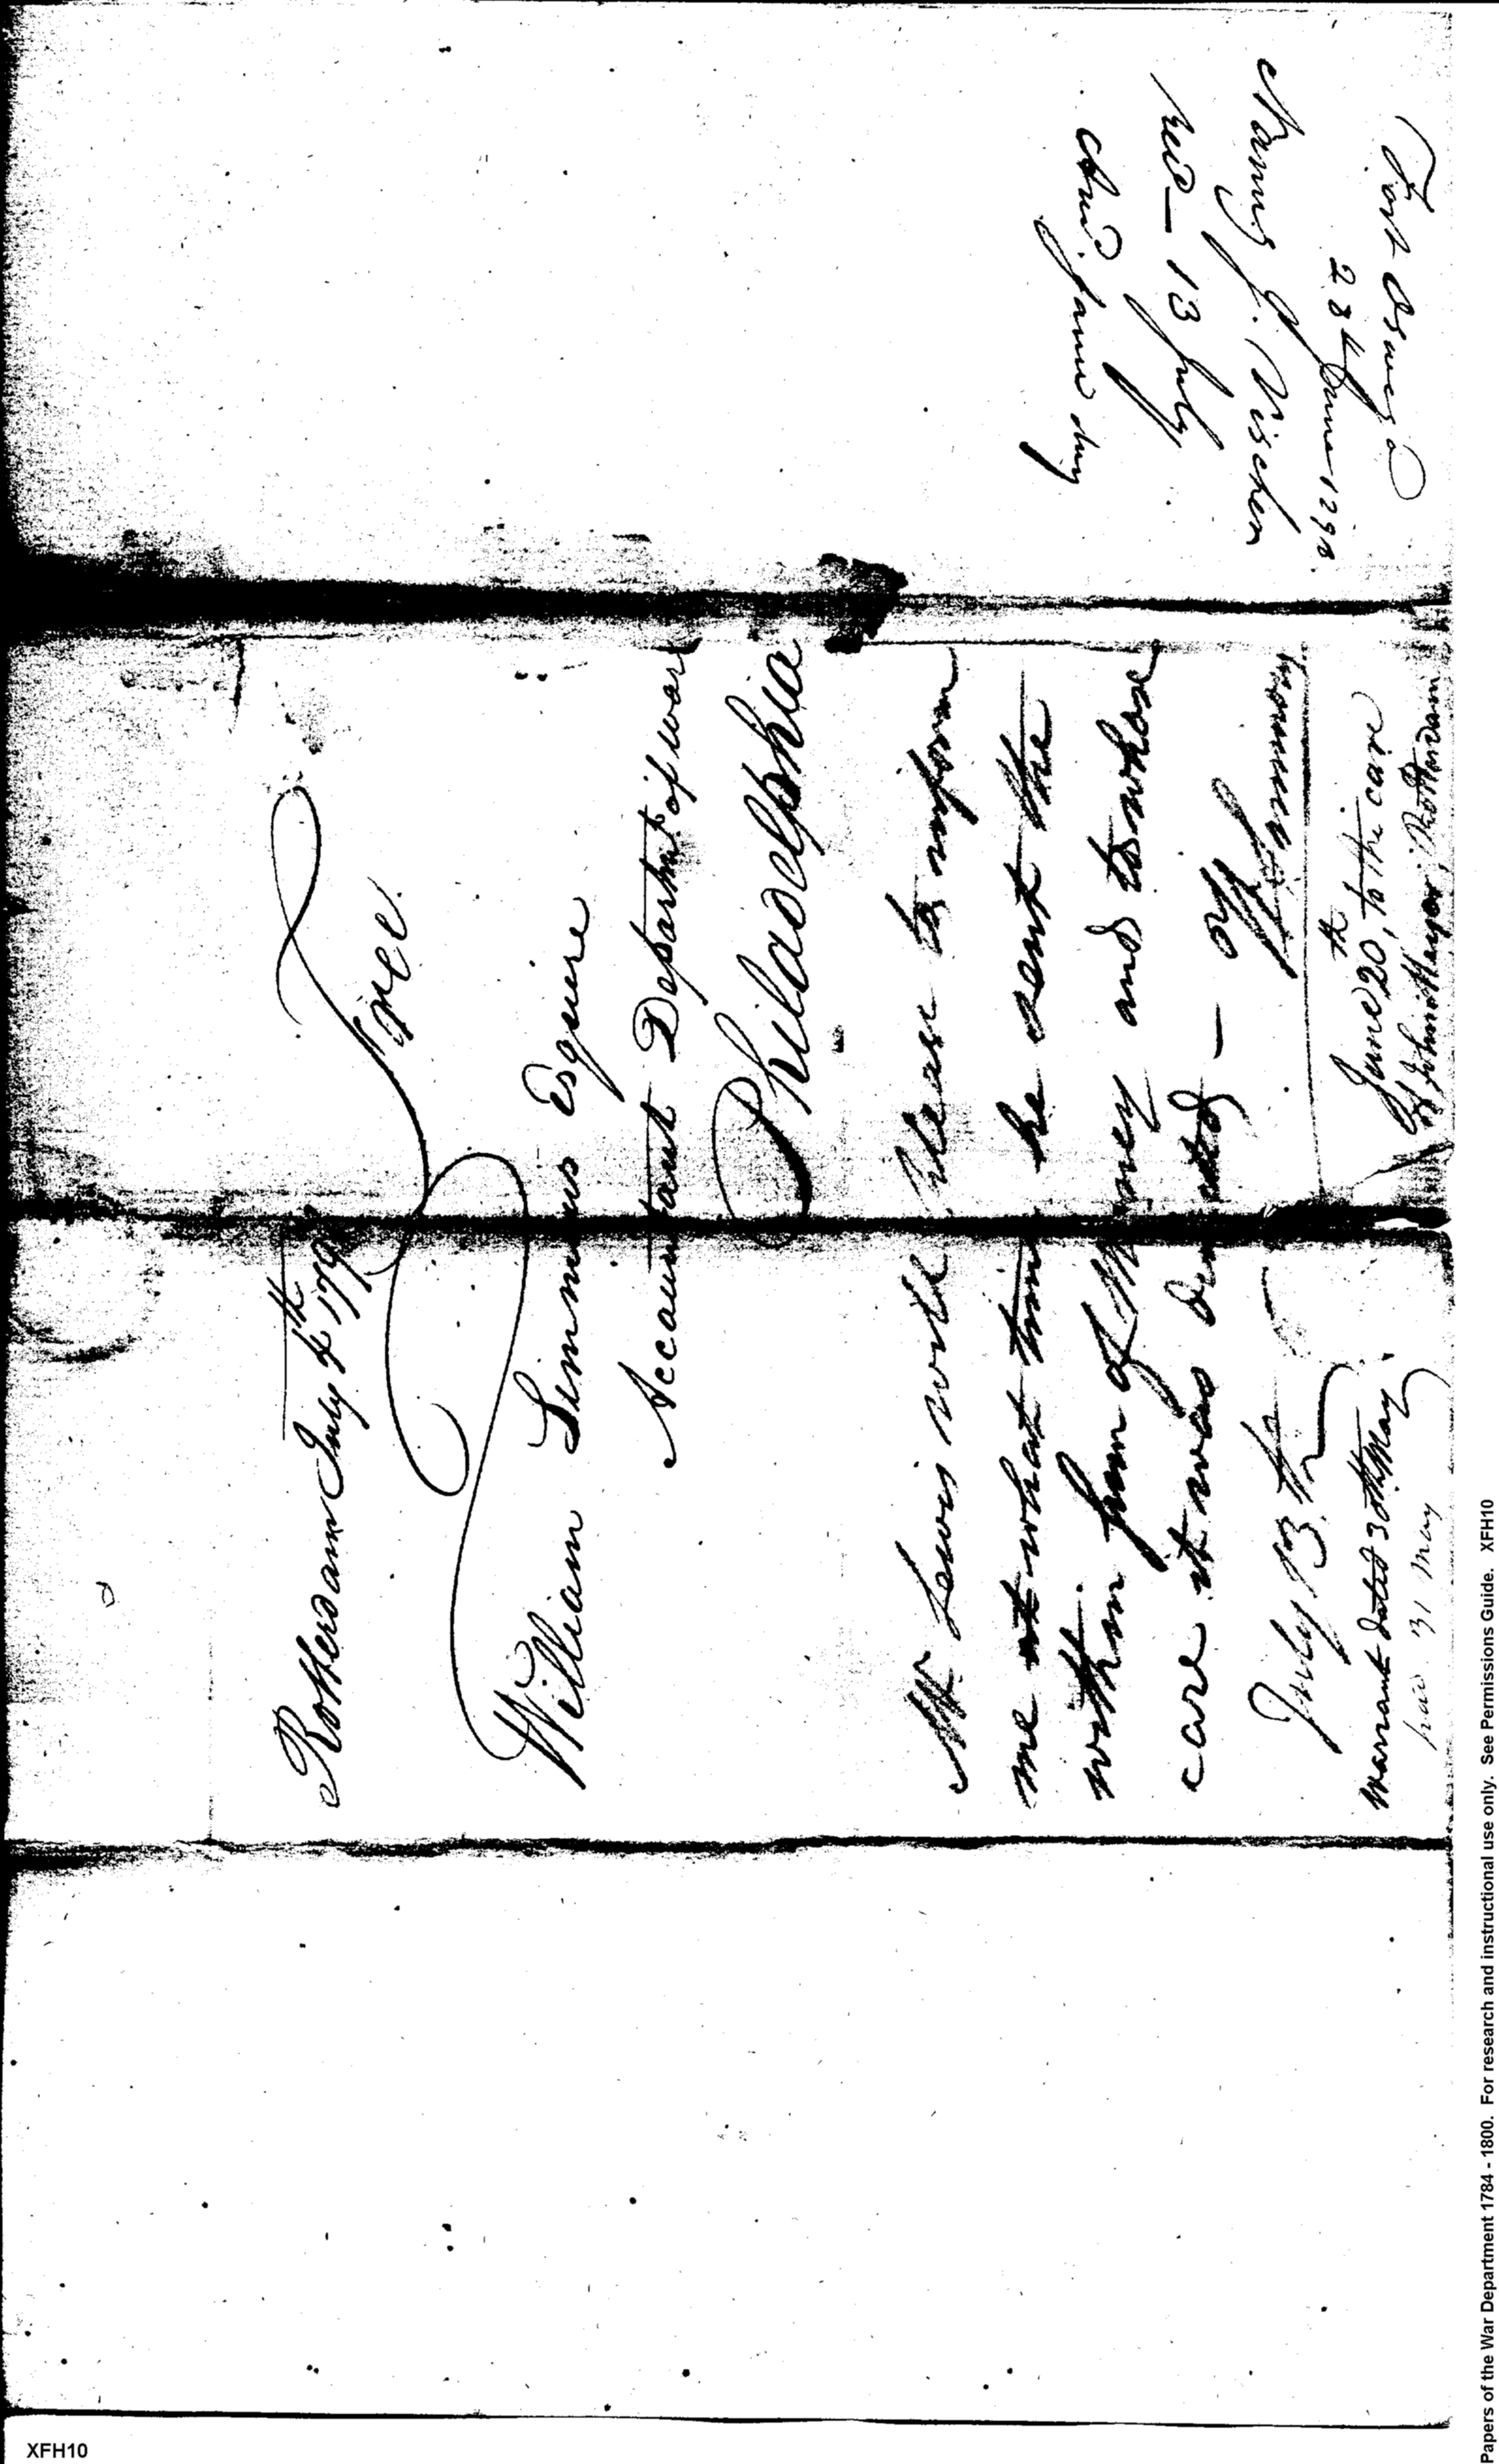 Rotterdam July 4th 179
Free
William Simmons Esquire
Accountant Departmt of War
Philadelphia
Mr Lewis will please to inform
me at what time he sent the
within form of money and to whose
care it was directed —
Wm Simmons
July 13th
June 20th, to the care
of John Mayer, Rotterdam
Warrant dated 30th May
paid 31 May
Fort Oswego
28th June 1798
Nanning J. Visscher
recd — 13 July
Ansd same day
Papers of the War Department 1784 - 1800. For research and instructional use only. See Permissions Guide. XFH10
XFH10